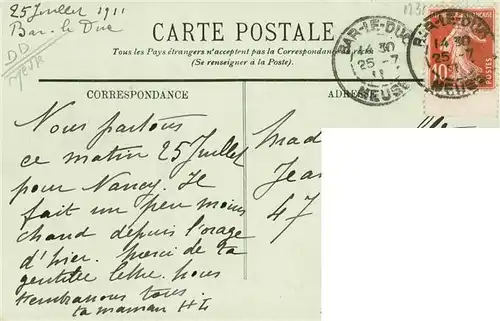 25 Juillet 1911
Bar-le Duc
CARTE POSTALE
Tous les Pays étrangers n'acceptent pas la Correspondance au recto.
(Se renseigner à la Poste).
BAR-LE-DUC
14 30
25 -7
11
MEUSE
BAR-LE-DUC
14 30
25
MEUSE
10
POSTES
CORRESPONDANCE
ADRESSE
Nous partons
ce matin 25 Juillet
pour Nancy. Il
fait un peu moins
chaud depuis l'orage
d'hier. Merci de ta
gentille lettre. Nous
t'embrassons tous.
ta maman HL
Mad
Jea
47